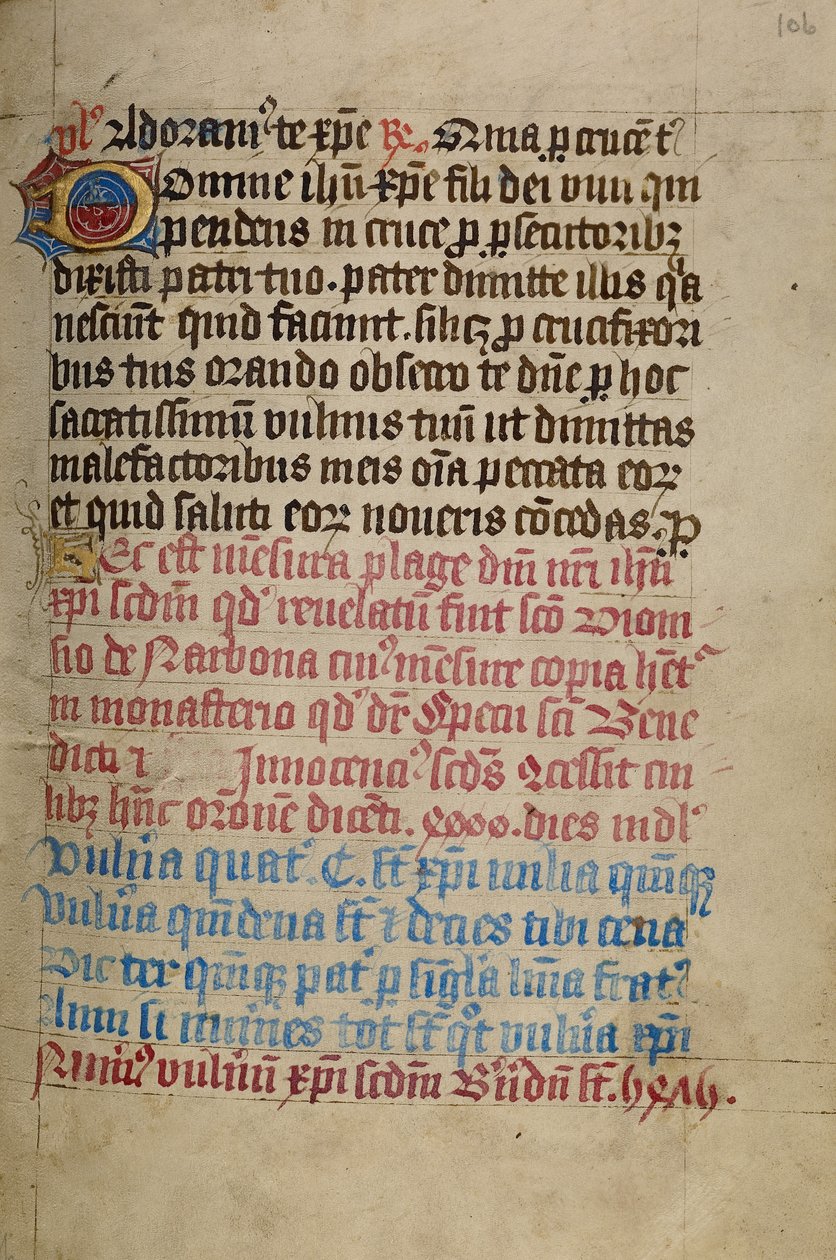 106
vs̄ Adoram⁹ te xp̄e R̄. Quia ꝑ crucē t⁹
Domine ih̄u xp̄e fili dei viui qui
pendens in cruce ꝓ ꝑsecutoribꝫ
dixisti patri tuo. pater dimitte illis qͥa
nesciūt quid faciunt. sic ꝓ crucifixori
bus tuis orando obsecro te dn̄e ꝑ hoc
sacratissimū vulnus tuū ut dimittas
malefactoribus meis oīa peccata eoꝝ
et quid saluti eoꝝ noueris cōcedas. P
Hec est mēsura plage dn̄i nr̄i ih̄u
xpi scd̄m qd' reuelatū fuit scō Dioni
sio de Narbona cui⁹ mēsure copia hēt⁹
in monasterio qd' dr̄ Specu sci Bene
dicti ⁊ Innocenci⁹ scd̄s ꝯcessit cui
libꝫ hūc orōnē dicēti. dies indl'
Vuln̄a quat⁹. C. st̄ xp̄i milia quīqꝫ
Vuln̄a quīdena st̄ ⁊ decies tibi cena
Dic ter quīqꝫ pat̄ ꝑ sīgl'a lim̄a frat⁹
Anni si mūies tot st̄ qͦt vuln̄a xp̄i
Nūer⁹ vulnerū xp̄i scd̄m st̄.